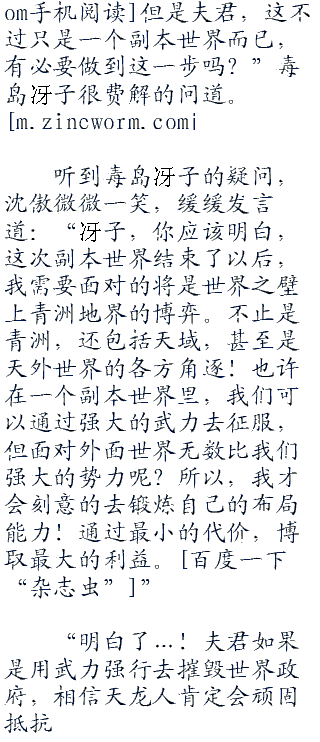 om手机阅读]但是夫君，这不
过只是一个副本世界而已，
有必要做到这一步吗？”毒
岛冴子很费解的问道。
[m.zincworm.com]
听到毒岛冴子的疑问，
沈傲微微一笑，缓缓发言
道：“冴子，你应该明白，
这次副本世界结束了以后，
我需要面对的将是世界之壁
上青洲地界的博弈。不止是
青洲，还包括天域，甚至是
天外世界的各方角逐！也许
在一个副本世界里，我们可
以通过强大的武力去征服，
但面对外面世界无数比我们
强大的势力呢？所以，我才
会刻意的去锻炼自己的布局
能力！通过最小的代价，博
取最大的利益。[百度一下
“杂志虫”]”
“明白了…！夫君如果
是用武力强行去摧毁世界政
府，相信天龙人肯定会顽固
抵抗